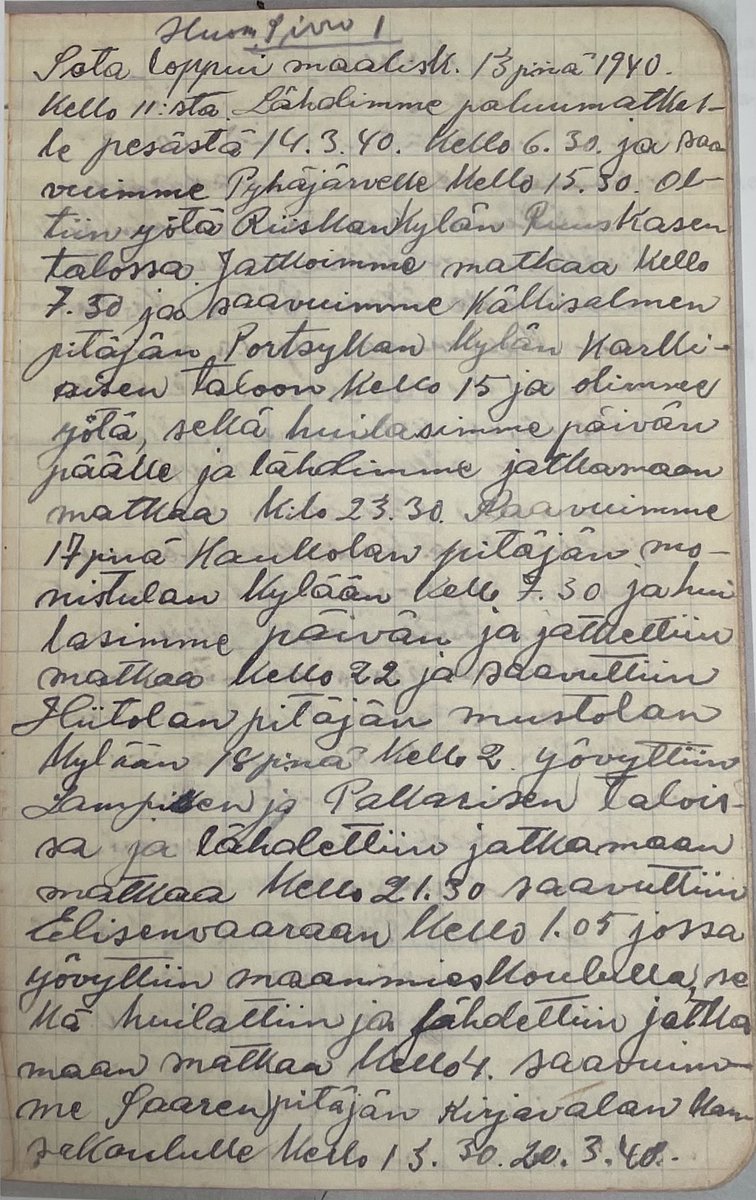 Huom Sivu 1
Sota loppui maalisk. 13 pnä 1940.
Kello 11:sta. Lähdimme paluumatkal-
le pesästä 14.3.40. Kello 6.30. ja saa
vuimme Pyhäjärvelle Kello 15.30. Ol-
tiin yötä Riiskan Kylän Ruuskasen
talossa. Jatkoimme matkaa Kello
7.30 ja saavuimme Käkisalmen
pitäjän Kylän
taloon Kello 15 ja olimme
yötä, sekä huilasimme päivän
päälle ja lähdimme jatkamaan
matkaa Klo 23.30. Saavuimme
17 pnä Kaukolan pitäjän mo-
nistulan Kylään Kello 7.30 ja hui
lasimme päivän ja jatkettiin
matkaa Kello 22 ja saavuttiin
Hiitolan pitäjän mustolan
Kylään 18 pnä Kello 2. yövyttiin
ja Pakarisen talois-
sa ja lähdettiin jatkamaan
matkaa Kello 21.30 saavuttiin
Elisenvaaraan Kello 1.05 jossa
yövyttiin maanmieskoululla, se
kä huilattiin ja lähdettiin jatka
maan matkaa Kello 4. saavuim-
me Saaren pitäjän Kirjavalan Kan
sakoululle Kello 13.30. 20.3.40.